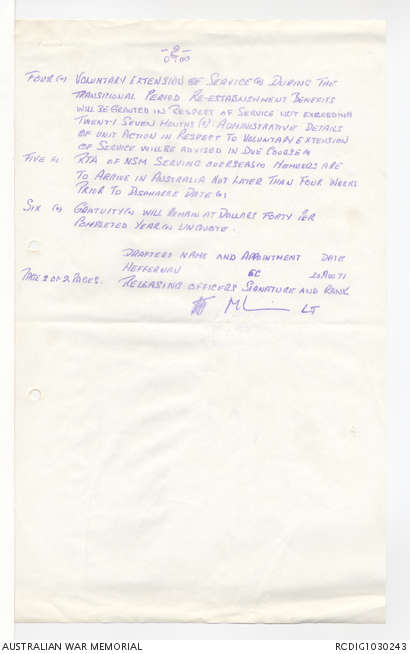 -2-
FOUR(.) VOLUNTARY EXTENSION OF SERVICE(.) DURING THE
TRANSITIONAL PERIOD RE-ESTABLISHMENT BENEFITS
WILL BE GRANTED IN RESPECT OF SERVICE NOT EXCEEDING
TWENTY SEVEN MONTHS(.) ADMINISTRATIVE DETAILS
OF UNIT ACTION IN RESPECT TO VOLUNTARY EXTENSION
OF SERVICE WILL BE ADVISED IN DUE COURSE(.)
FIVE (.) RTA OF NSM SERVING OVERSEAS(.) MEMBERS ARE
TO ARRIVE IN AUSTRALIA NOT LATER THAN FOUR WEEKS
PRIOR TO DISCHARGE DATE(.)
SIX (.) GRATUITY(.) WILL REMAIN AT DOLLARS FORTY PER
COMPLETED YEAR(.) UNQUOTE.
DRAFTERS NAME AND APPOINTMENT DATE
HEFFERNAN 20 AUG 71
PAGE 2 OF 2 PAGES. RELEASING OFFICERS SIGNATURE AND RANK
LT
AUSTRALIAN WAR MEMORIAL RCDIG1030243